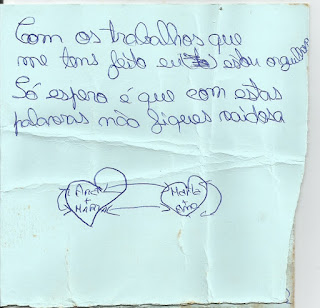 Com os trabalhos que
me tens feito eu estou orgulhosa
Só espero é que com estas
palavras não fiques vaidosa
Ana
+
Marta
Marta
+
Ana